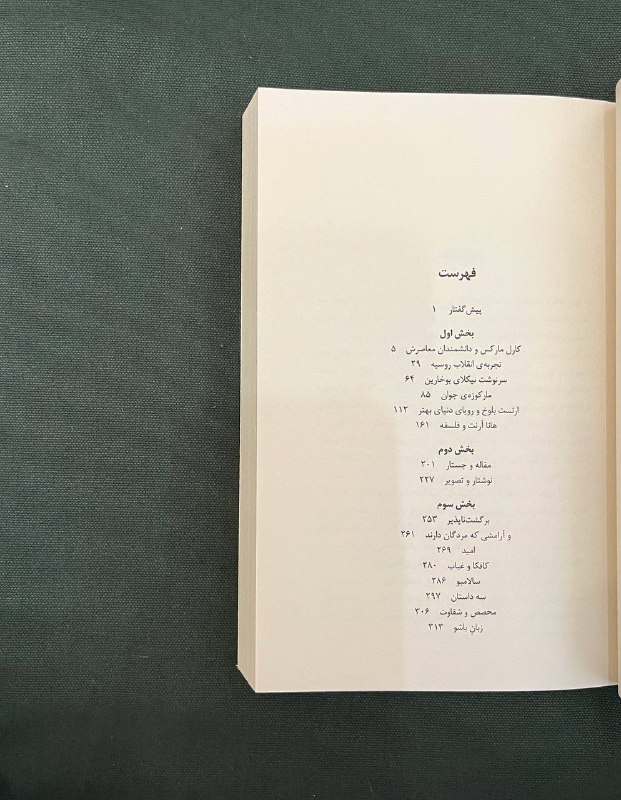 فهرست
پیش‌گفتار ۱
بخش اول
کارل مارکس و دانشمندان معاصرش ۵
تجربه‌ی انقلاب روسیه ۳۹
سرنوشت نیکلای بوخارین ۶۴
مارکوزه‌ی جوان ۸۵
ارنست بلوخ و رویای دنیای بهتر ۱۱۲
هانا آرنت و فلسفه ۱۶۱
بخش دوم
مقاله و جستار ۲۰۱
نوشتار و تصویر ۲۲۷
بخش سوم
برگشت‌ناپذیر ۲۵۳
و آرامشی که مردگان دارند ۲۶۱
امید ۲۶۹
کافکا و غیاب ۲۸۰
سالامبو ۲۸۶
سه داستان ۲۹۷
محصص و شقاوت ۳۰۶
زبان باشو ۳۱۳